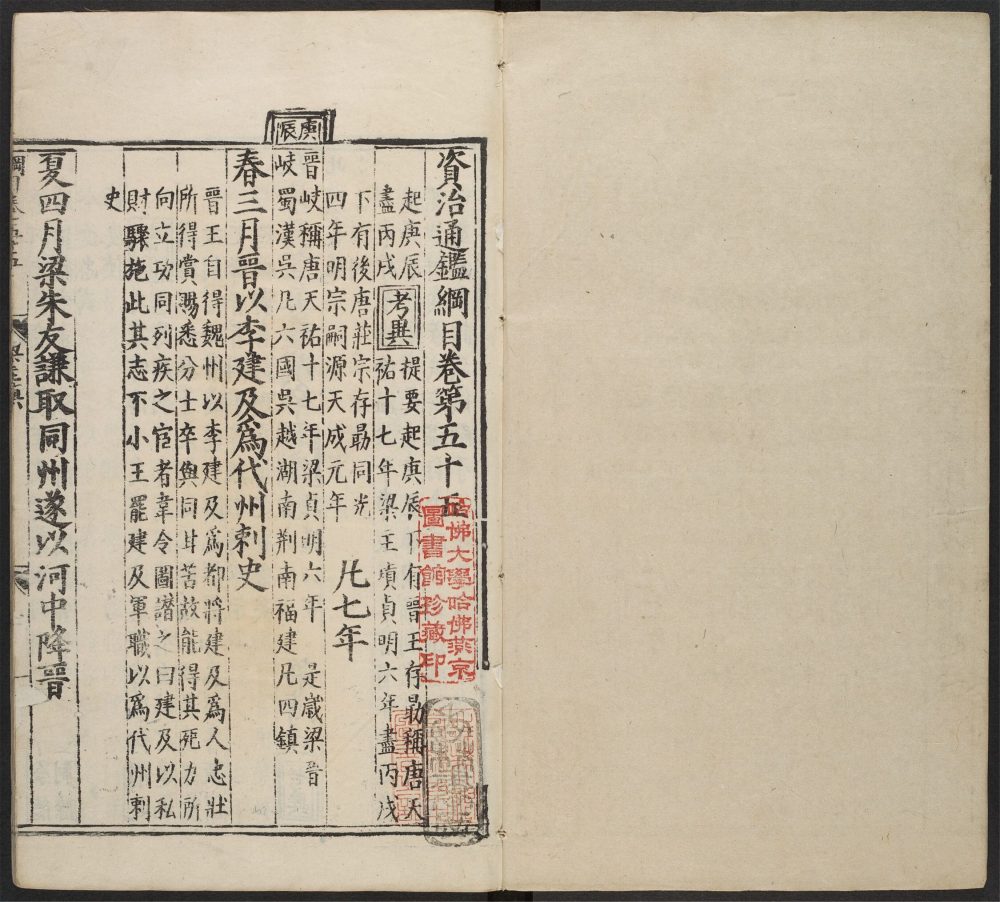 庚辰
資治通鑑綱目卷第五十五
起庚辰
盡丙戌
考異
提要起庚辰下有晉王存勗稱唐天
祐十七年梁王瑱貞明六年盡丙戌
下有後唐莊宗存勗同光
四年明宗嗣源天成元年
凡七年
晉岐稱唐天祐十七年梁貞明六年 是歲梁晉
岐蜀漢吳凡六國吳越湖南荆南福建凡四鎮
春三月晉以李建及爲代州刺史
晉王自得魏州以李建及爲都將建及爲人忠壯
所得賞賜悉分士卒與同甘苦故能得其死力所
向立功同列疾之宦者韋令圖譖之曰建及以私
財驟施此其志不小王罷建及軍職以爲代州刺
史
夏四月梁朱友謙取同州遂以河中降晉
綱目卷五十五
哈佛大學哈佛燕京
圖書館珍藏印